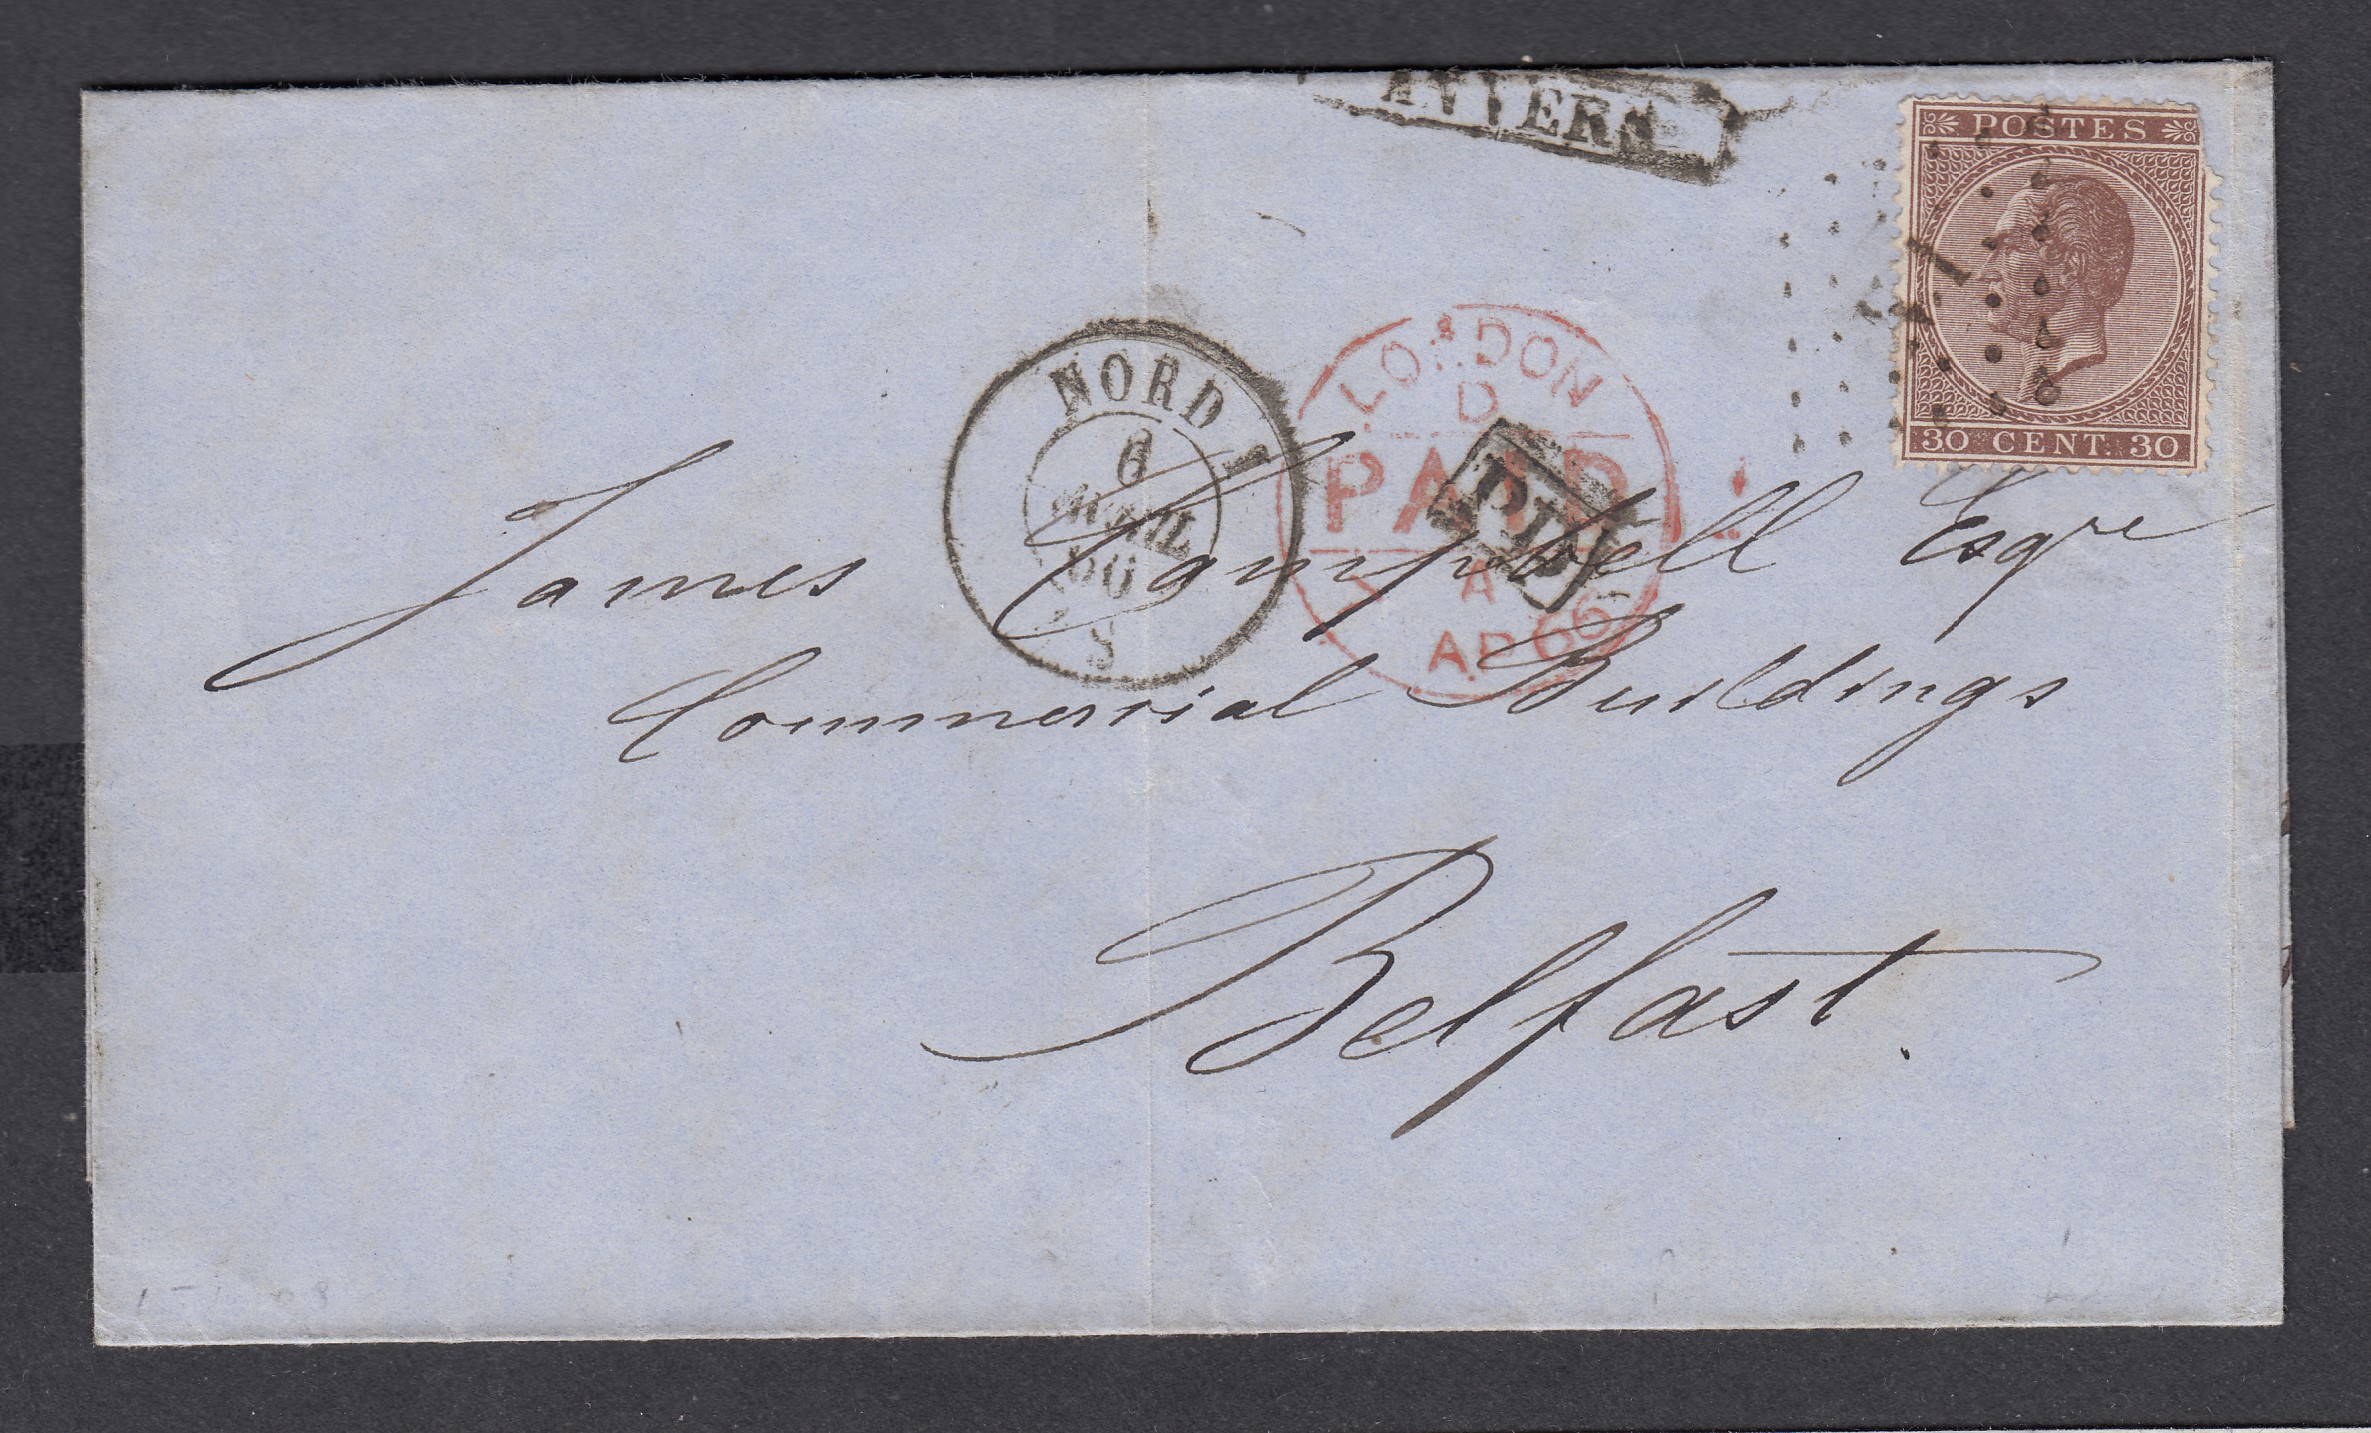 ANVERS
POSTES
30 CENT. 30
NORD 1
6
AVRIL
66
8
LONDON
D
PAID
7 A
AP 66
P.D.
James Campbell Esqre
Commercial Buildings
Belfast.